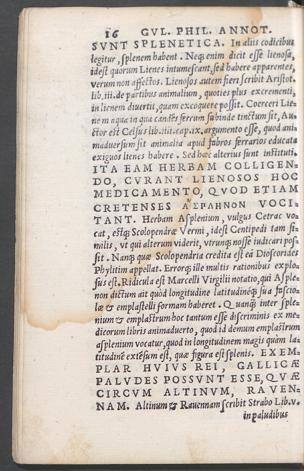 16 GVL. PHIL. ANNOT.
SVNT SPLENETICA. In aliis codicibus
legitur, splenem habent. Neq; enim dicit esse lienosa,
idest quorum Lienes intumescant, sed habere apparentes,
verum non affectos. Lienosos autem fieri scribit Aristot.
lib. iii. de partibus animalium, quoties plus excrementi,
in lienem diuertit, quam excoquere possit. Coerceri Lie-
nem aqua in qua candens ferrum subinde tinctum sit, Au-
ctor est Celsus lib. iiii. cap. ix. argumento esse, quod ani-
maduersum sit animalia apud fabros ferrarios educata
exiguos lienes habere. Sed haec alterius sunt instituti.
ITA EAM HERBAM COLLIGEN-
DO, CVRANT LIENOSOS HOC
MEDICAMENTO, QVOD ETIAM
CRETENSES ΑΣΡΛΗΝΟΝ VOCI-
TANT. Herbam Asplenium, vulgus Cetrac vo-
cat, estq; Scolopendræ Vermi, idest Centipedi tam si-
milis, vt qui alterum viderit, vtrunq; nosse iudicari pos-
sit. Nanq; quæ Scolopendria credita est ea Dioscorides
Phylitim appellat. Errorq; ille multis rationibus explo-
sus est. Ridicula est Marcelli Virgilii notatio, qui Asple-
non dictum ait quòd longitudine latitudineq; sua fascio-
læ & emplastelli formam haberet. Quanq; inter sple-
nium & emplastrum hoc tantum esse discriminis ex me-
dicorum libris animaduerto, quod id demum emplastrum
asplenium vocatur, quod in longitudinem magis quàm la-
titudinē extēsum est, quæ figura est splenis. EXEM-
PLAR HVIVS REI, GALLICÆ
PALVDES POSSVNT ESSE, QVÆ
CIRCVM ALTINVM, RAVEN-
NAM. Altinum & Rauennam scribit Strabo Lib. v.
in paludibus